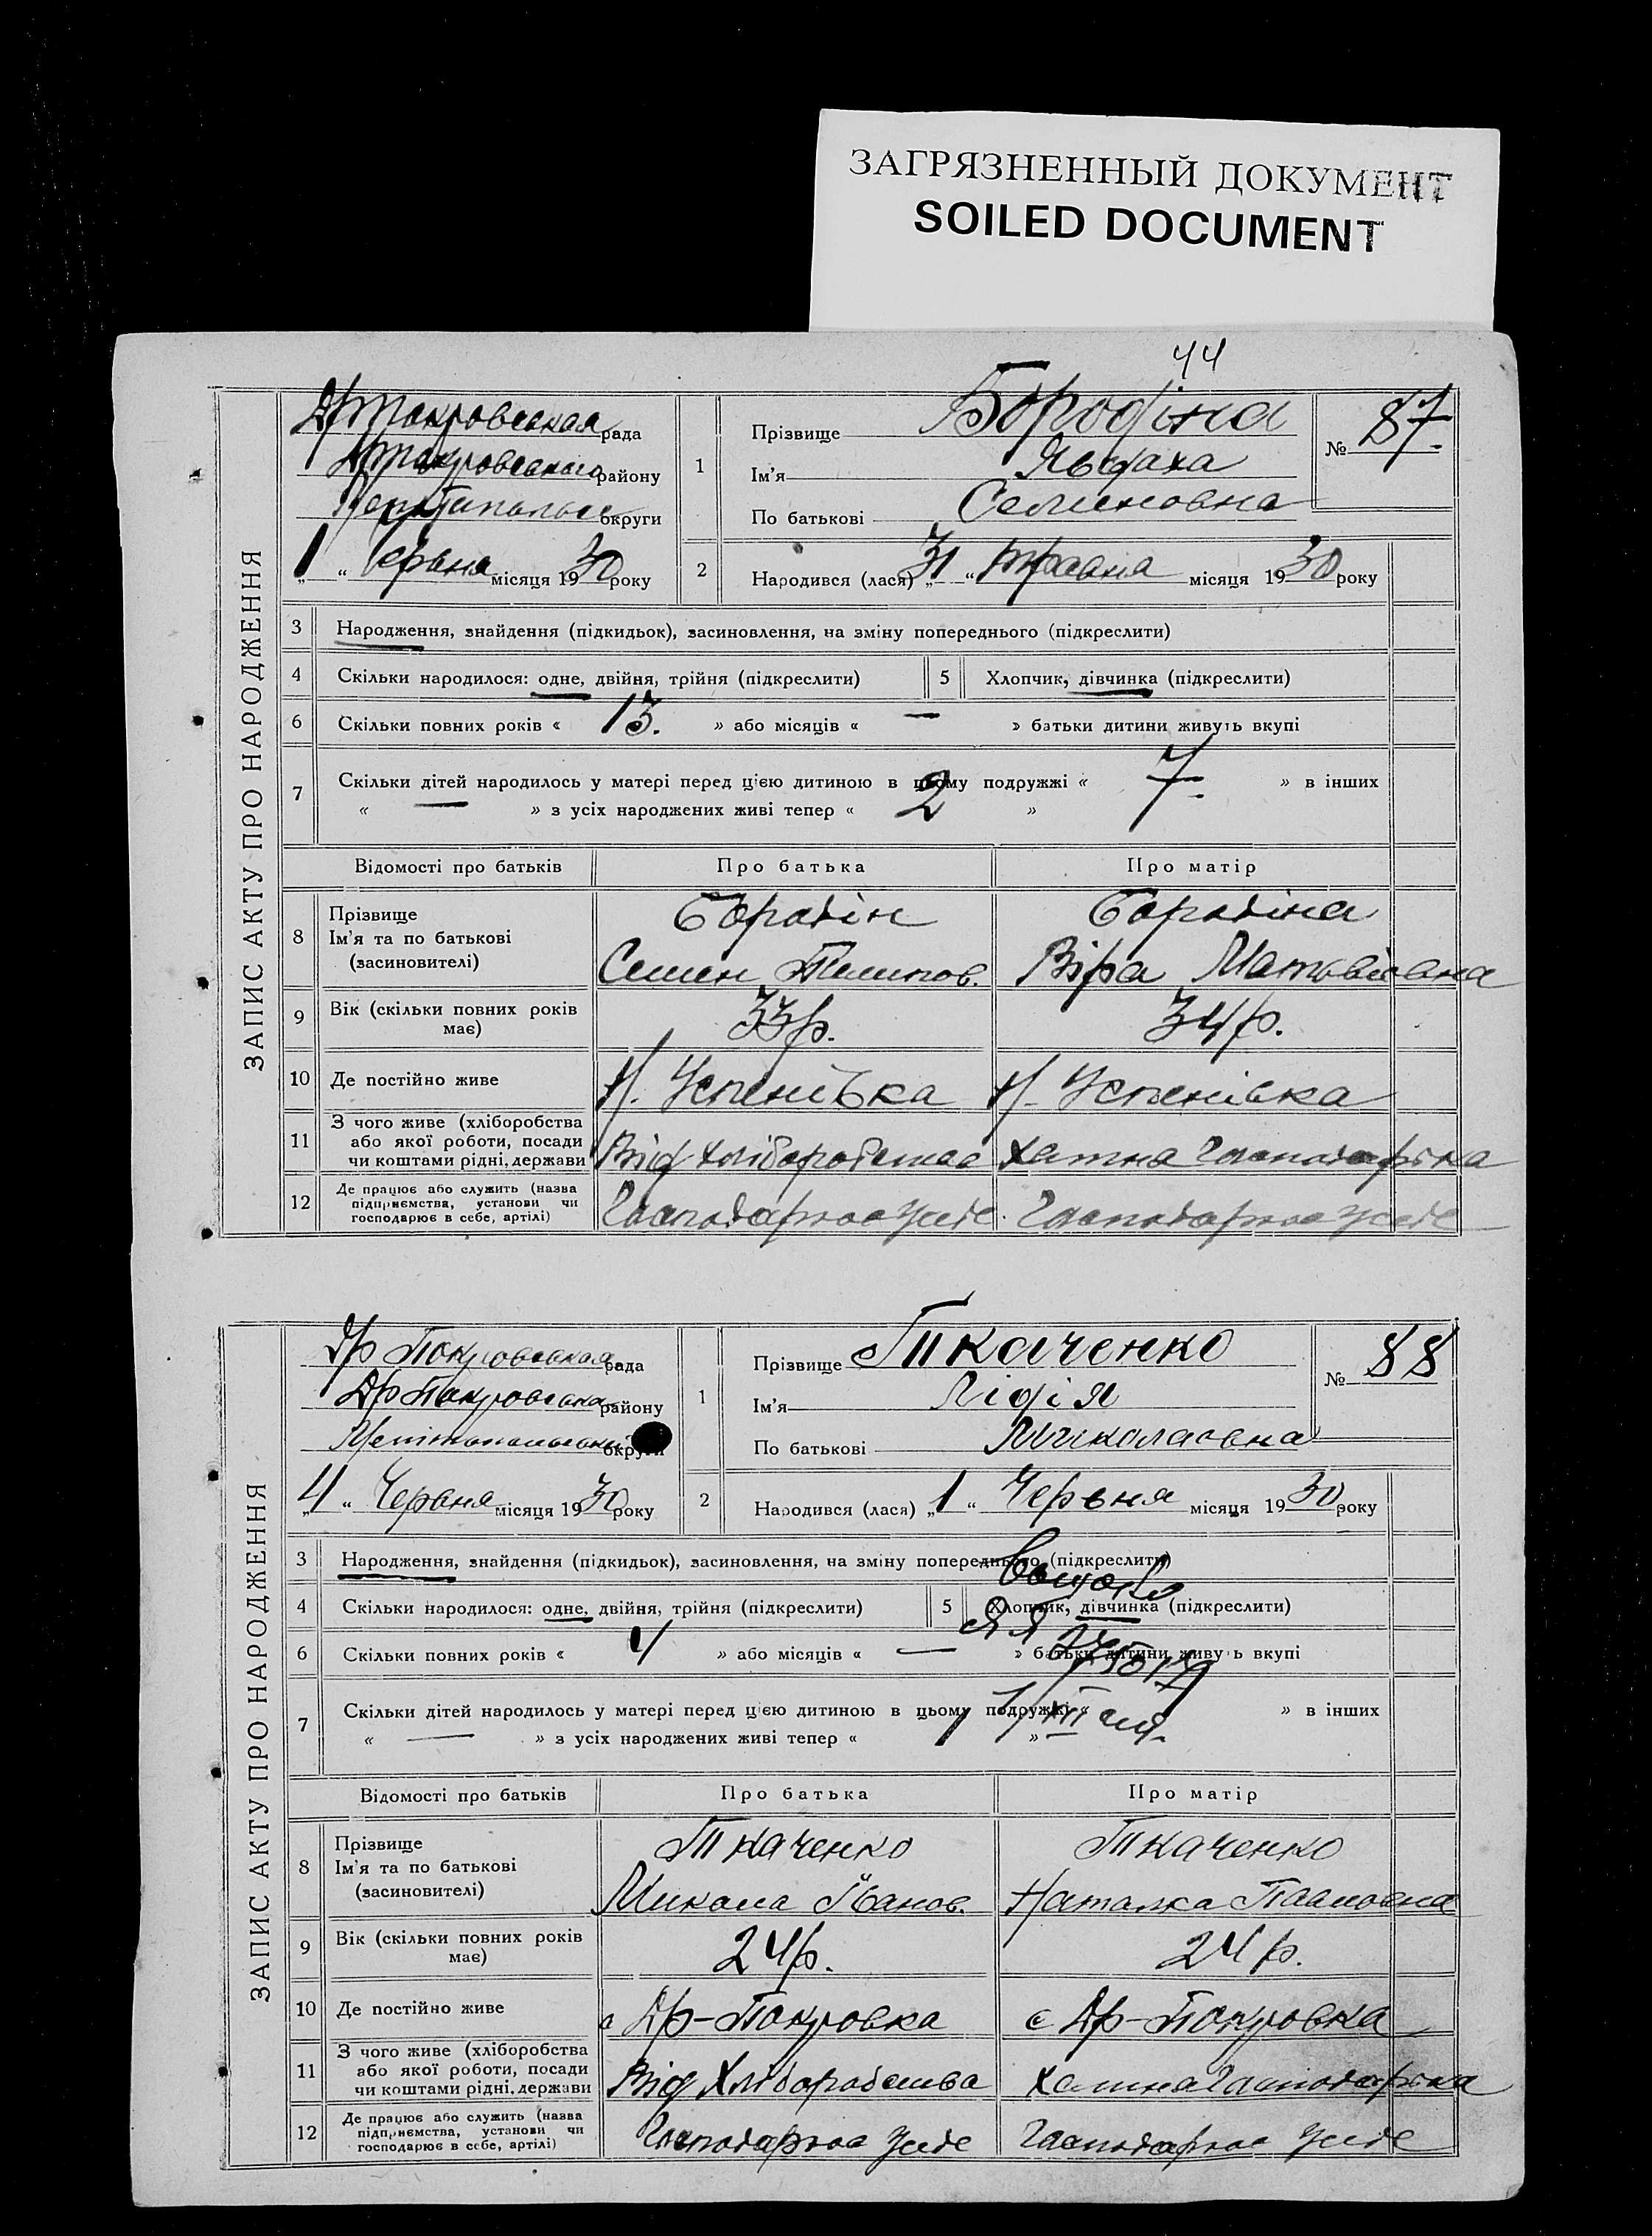 ЗАГРЯЗНЕННЫЙ ДОКУМЕНТ
SOILED DOCUMENT
44
ЗАПИС АКТУ ПРО НАРОДЖЕННЯ
рада
району
округи
1 “ Червня місяця 1930 року
1
Прізвище Бородіна
Ім'я
По батькові Семеновна
№ 87
2
Народився (лася) „31 “ Травня місяця 1930 року
3 Народження, знайдення (підкидьок), засиновлення, на зміну попереднього (підкреслити)
4 Скільки народилося: одне, двійня, трійня (підкреслити) 5 Хлопчик, дівчинка (підкреслити)
6 Скільки повних років « 13. » або місяців « — » батьки дитини живуть вкупі
7 Скільки дітей народилось у матері перед цією дитиною в цьому подружжі « 7 » в інших
« — » з усіх народжених живі тепер « 2 »
Відомості про батьків Про батька Про матір
8 Прізвище Бородін Бородіна
Ім'я та по батькові
(засновителі) Семен Віра Матвієвна
9 Вік (скільки повних років має) 33р. 34р.
10 Де постійно живе Н. Успенівка Н. Успенівка
11 З чого живе (хліборобства
або якої роботи, посади
чи коштами рідні, держави Від хліборобства Хатня Господарка
12 Де працює або служить (назва
підприємства, установи чи
господарює в себе, артілі) Господарює у себе Господарює у себе
ЗАПИС АКТУ ПРО НАРОДЖЕННЯ
Др Покровская рада
Др Покровська району
округи
„4 “ Червня місяця 1930 року
1
Прізвище Ткаченко
Ім'я Лідія
По батькові Миколаовна
№ 88
2
Народився (лася) „1 “ Червня місяця 1930 року
3 Народження, знайдення (підкидьок), засиновлення, на зміну попереднього (підкреслити)
4 Скільки народилося: одне, двійня, трійня (підкреслити) 5 Хлопчик, дівчинка (підкреслити)
6 Скільки повних років « 4 » або місяців « — » батьки дитини живуть вкупі
7 Скільки дітей народилось у матері перед цією дитиною в цьому подружжі « » в інших
« — » з усіх народжених живі тепер « 1 »
Відомості про батьків Про батька Про матір
8 Прізвище Ткаченко Ткаченко
Ім'я та по батькові
(засиновителі) Микола Іванов. Наталка
9 Вік (скільки повних років має) 24р. 24р.
10 Де постійно живе с Др-Покровка с Др-Покровка
11 З чого живе (хліборобства
або якої роботи, посади
чи коштами рідні, держави Від Хліборобства Хатня Господарка
12 Де працює або служить (назва
підприємства, установи чи
господарює в себе, артілі) Господарює у себе Господарює у себе